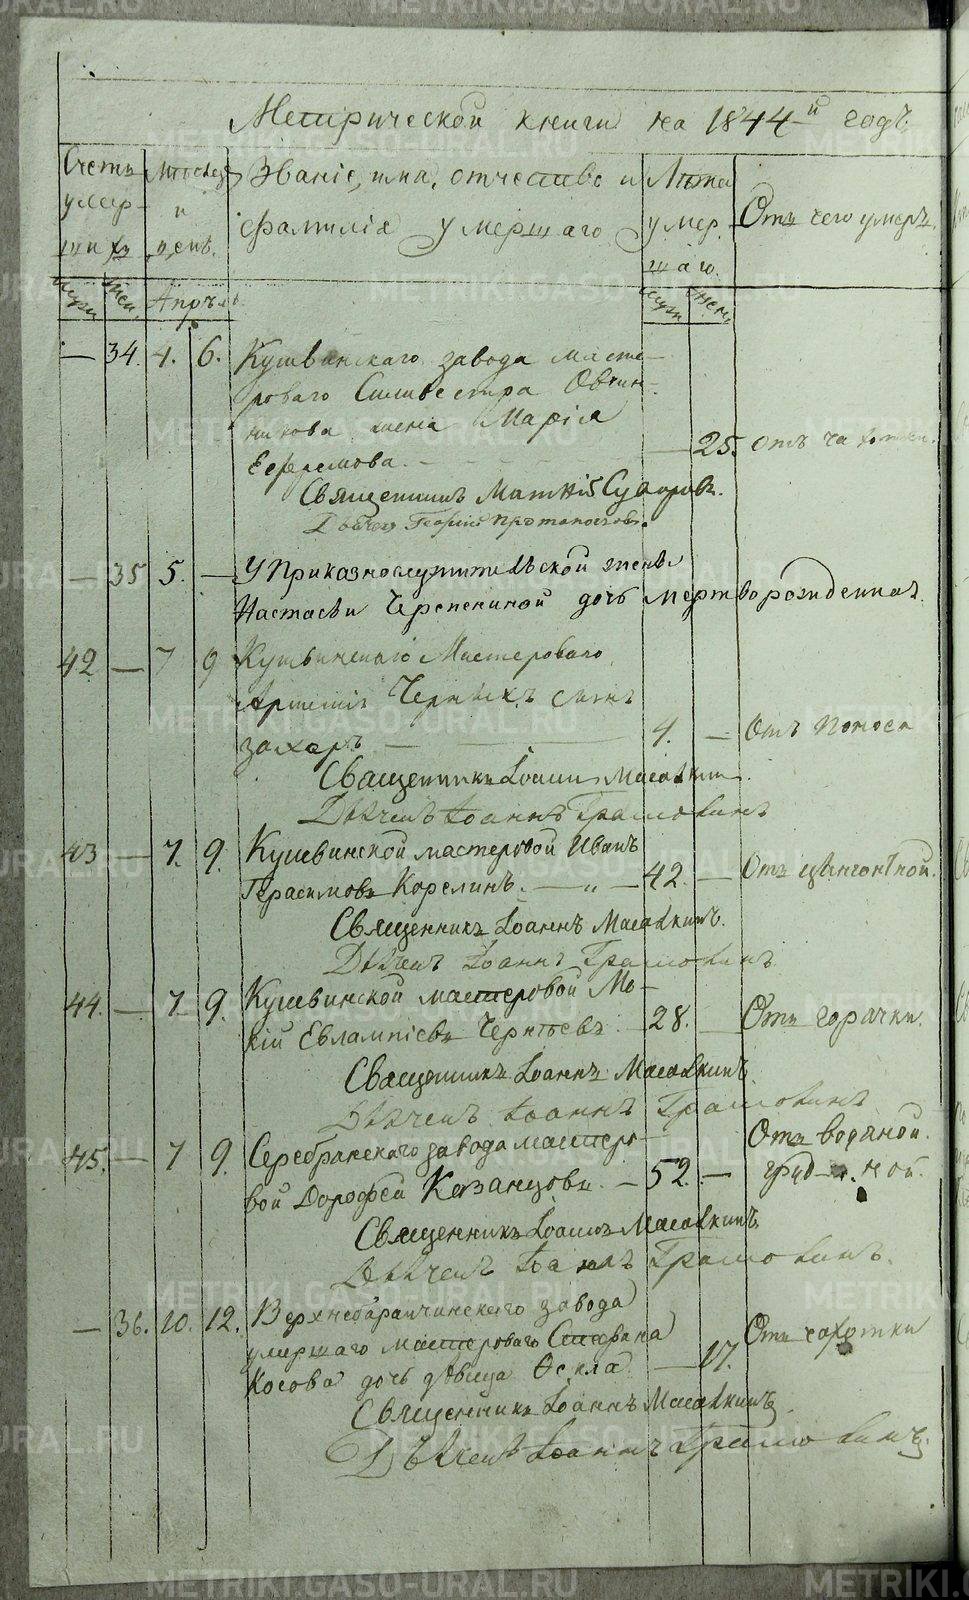 Метрической книги на 1844й годъ
Счетъ умер- шихъ
Месяцъ и день.
Званіе, имя, отчество и фамилія умершаго
Лѣта умер- шаго.
Отъ чего умеръ.
муж. жен. Апрѣль муж. жен.
— 34. 4. 6. Кушвинскаго завода масте-
роваго Сильвестра Овчин-
никова жена Марія
Ефремова. — 25. отъ чахотки.
Священникъ Матѳій Суворовъ.
Дьячекъ Георгій Протопоповъ.
— 35 5. — У Приказнослужительской жены
Настасьи Черепениной дочь мертворожденная.
42 — 7 9 Кушвинскаго Мастероваго
Артемія Черныхъ сынъ
Захаръ — 4. — Отъ поноса
Священникъ Іоаннъ Масалкинъ.
Дьячекъ Іоаннъ
43 — 7. 9. Кушвинской мастеровой Иванъ
Герасимовъ Корелинъ. — „ — 42. — Отъ цынготной.
Священникъ Іоаннъ Масалкинъ.
Дьячекъ Іоаннъ
44. — 7. 9. Кушвинской мастеровой Мо-
кій Евлампіевъ — 28. — Отъ горячки.
Священникъ Іоаннъ Масалкинъ
Дьячекъ Іоаннъ
45. — 7 9. Серебрянскаго завода мастеро-
вой Дорофей Казанцовъ. — 52. — Отъ водяной
Священникъ Іоаннъ Масалкинъ
Дьячекъ Іоаннъ
— 36. 10. 12. Верхнебаранчинскаго завода
умершаго мастероваго Стефана
Косова дочь дѣвица — 17. Отъ чахотки
Священникъ Іоаннъ Масалкинъ.
Дьячекъ Іоаннъ
METRIKI.GASO-URAL.RU